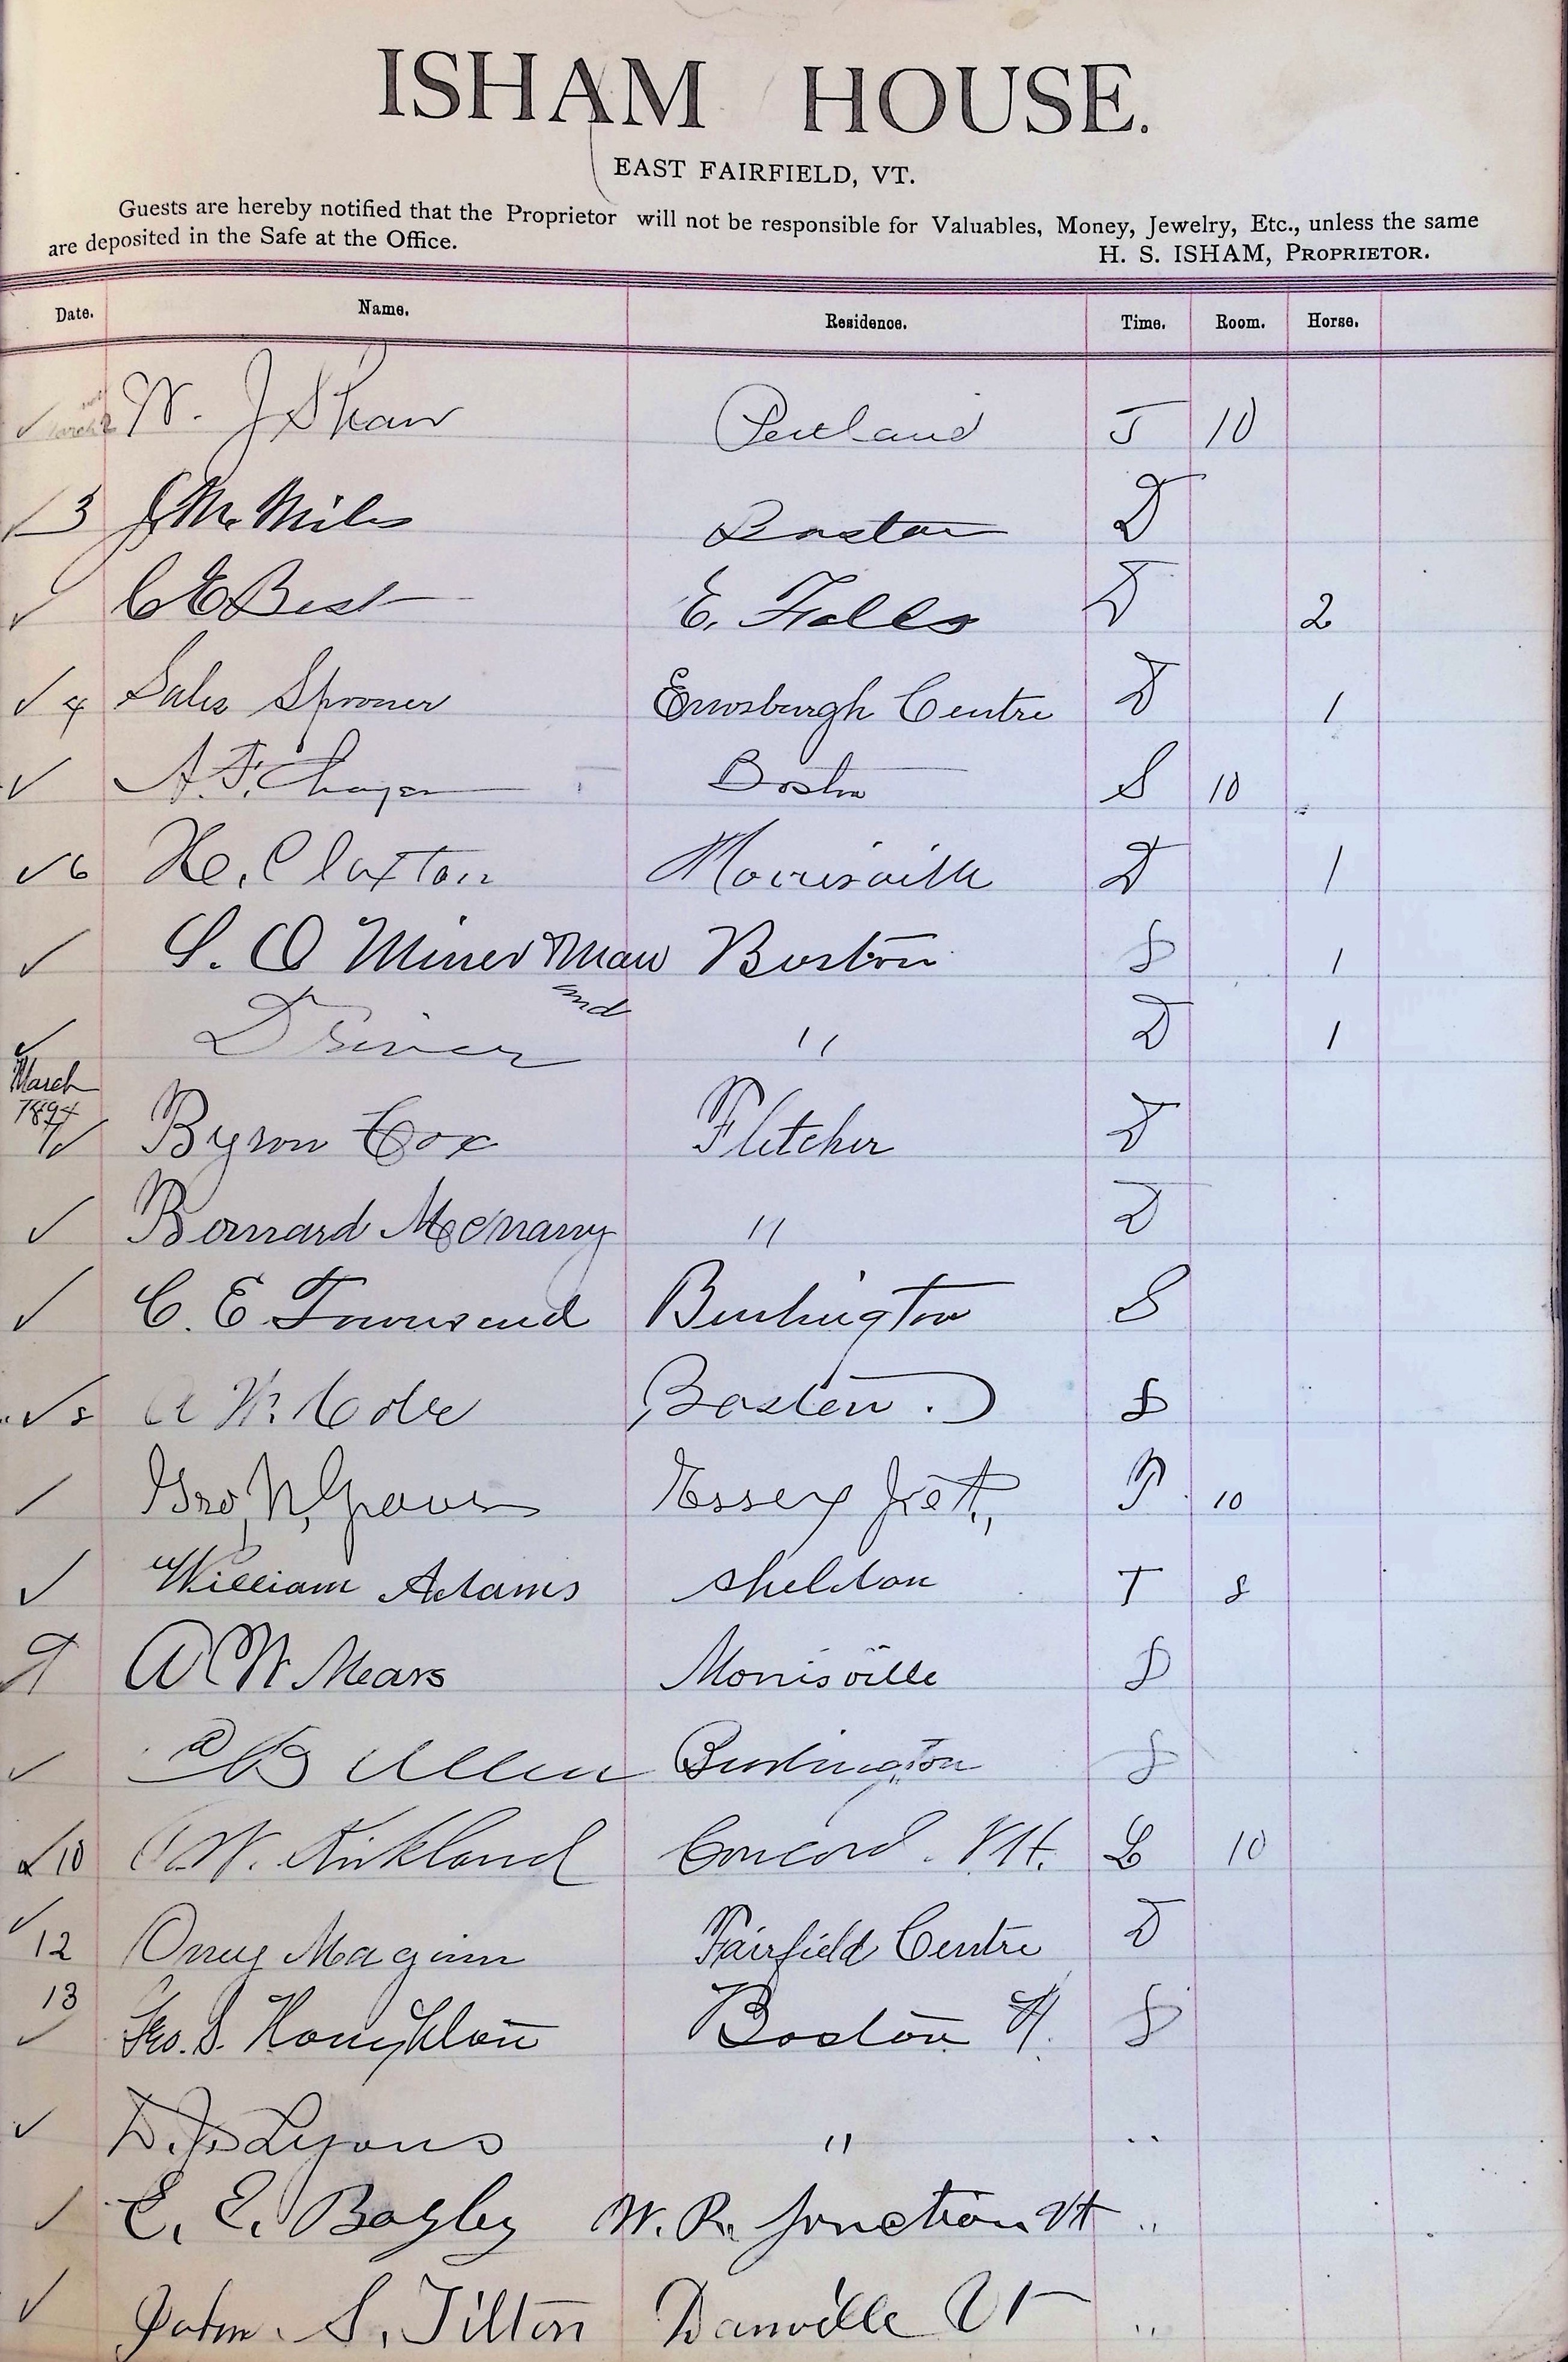 ISHAM HOUSE.
EAST FAIRFIELD, VT.
Guests are hereby notified that the Proprietor will not be responsible for Valuables, Money, Jewelry, Etc., unless the same
are deposited in the Safe at the Office.
H. S. ISHAM, PROPRIETOR.
Date. Name. Residence. Time. Room. Horse.
W. J Shaw Portland T 10
3 J. M. Miles Boston D
C E Best E. Falls D 2
4 Sales Spooner Enosburgh Centre D 1
A. F. Boston S 10
6 H. Claxton Morrisville D 1
S. O Miner & Man Boston S 1
and
Driver " D 1
March
1894
7 Byron Cox Fletcher D
Bernard " D
C. E. Townsend Burlington S
8 A W. Cole Boston. S
Geo. N. Graves Essex Jct., 10
William Adams Sheldon T 8
9 A W Mears Morrisville S
B Allen Burlington S
10 W. Kirkland Concord. N.H. L 10
12 Maginn Fairfield Centre D
13
Geo. S. Houghton Boston S
D. J. Lyons " "
E. E. Bagley W. R. Junction Vt "
John. S. Tilton Danville Vt "